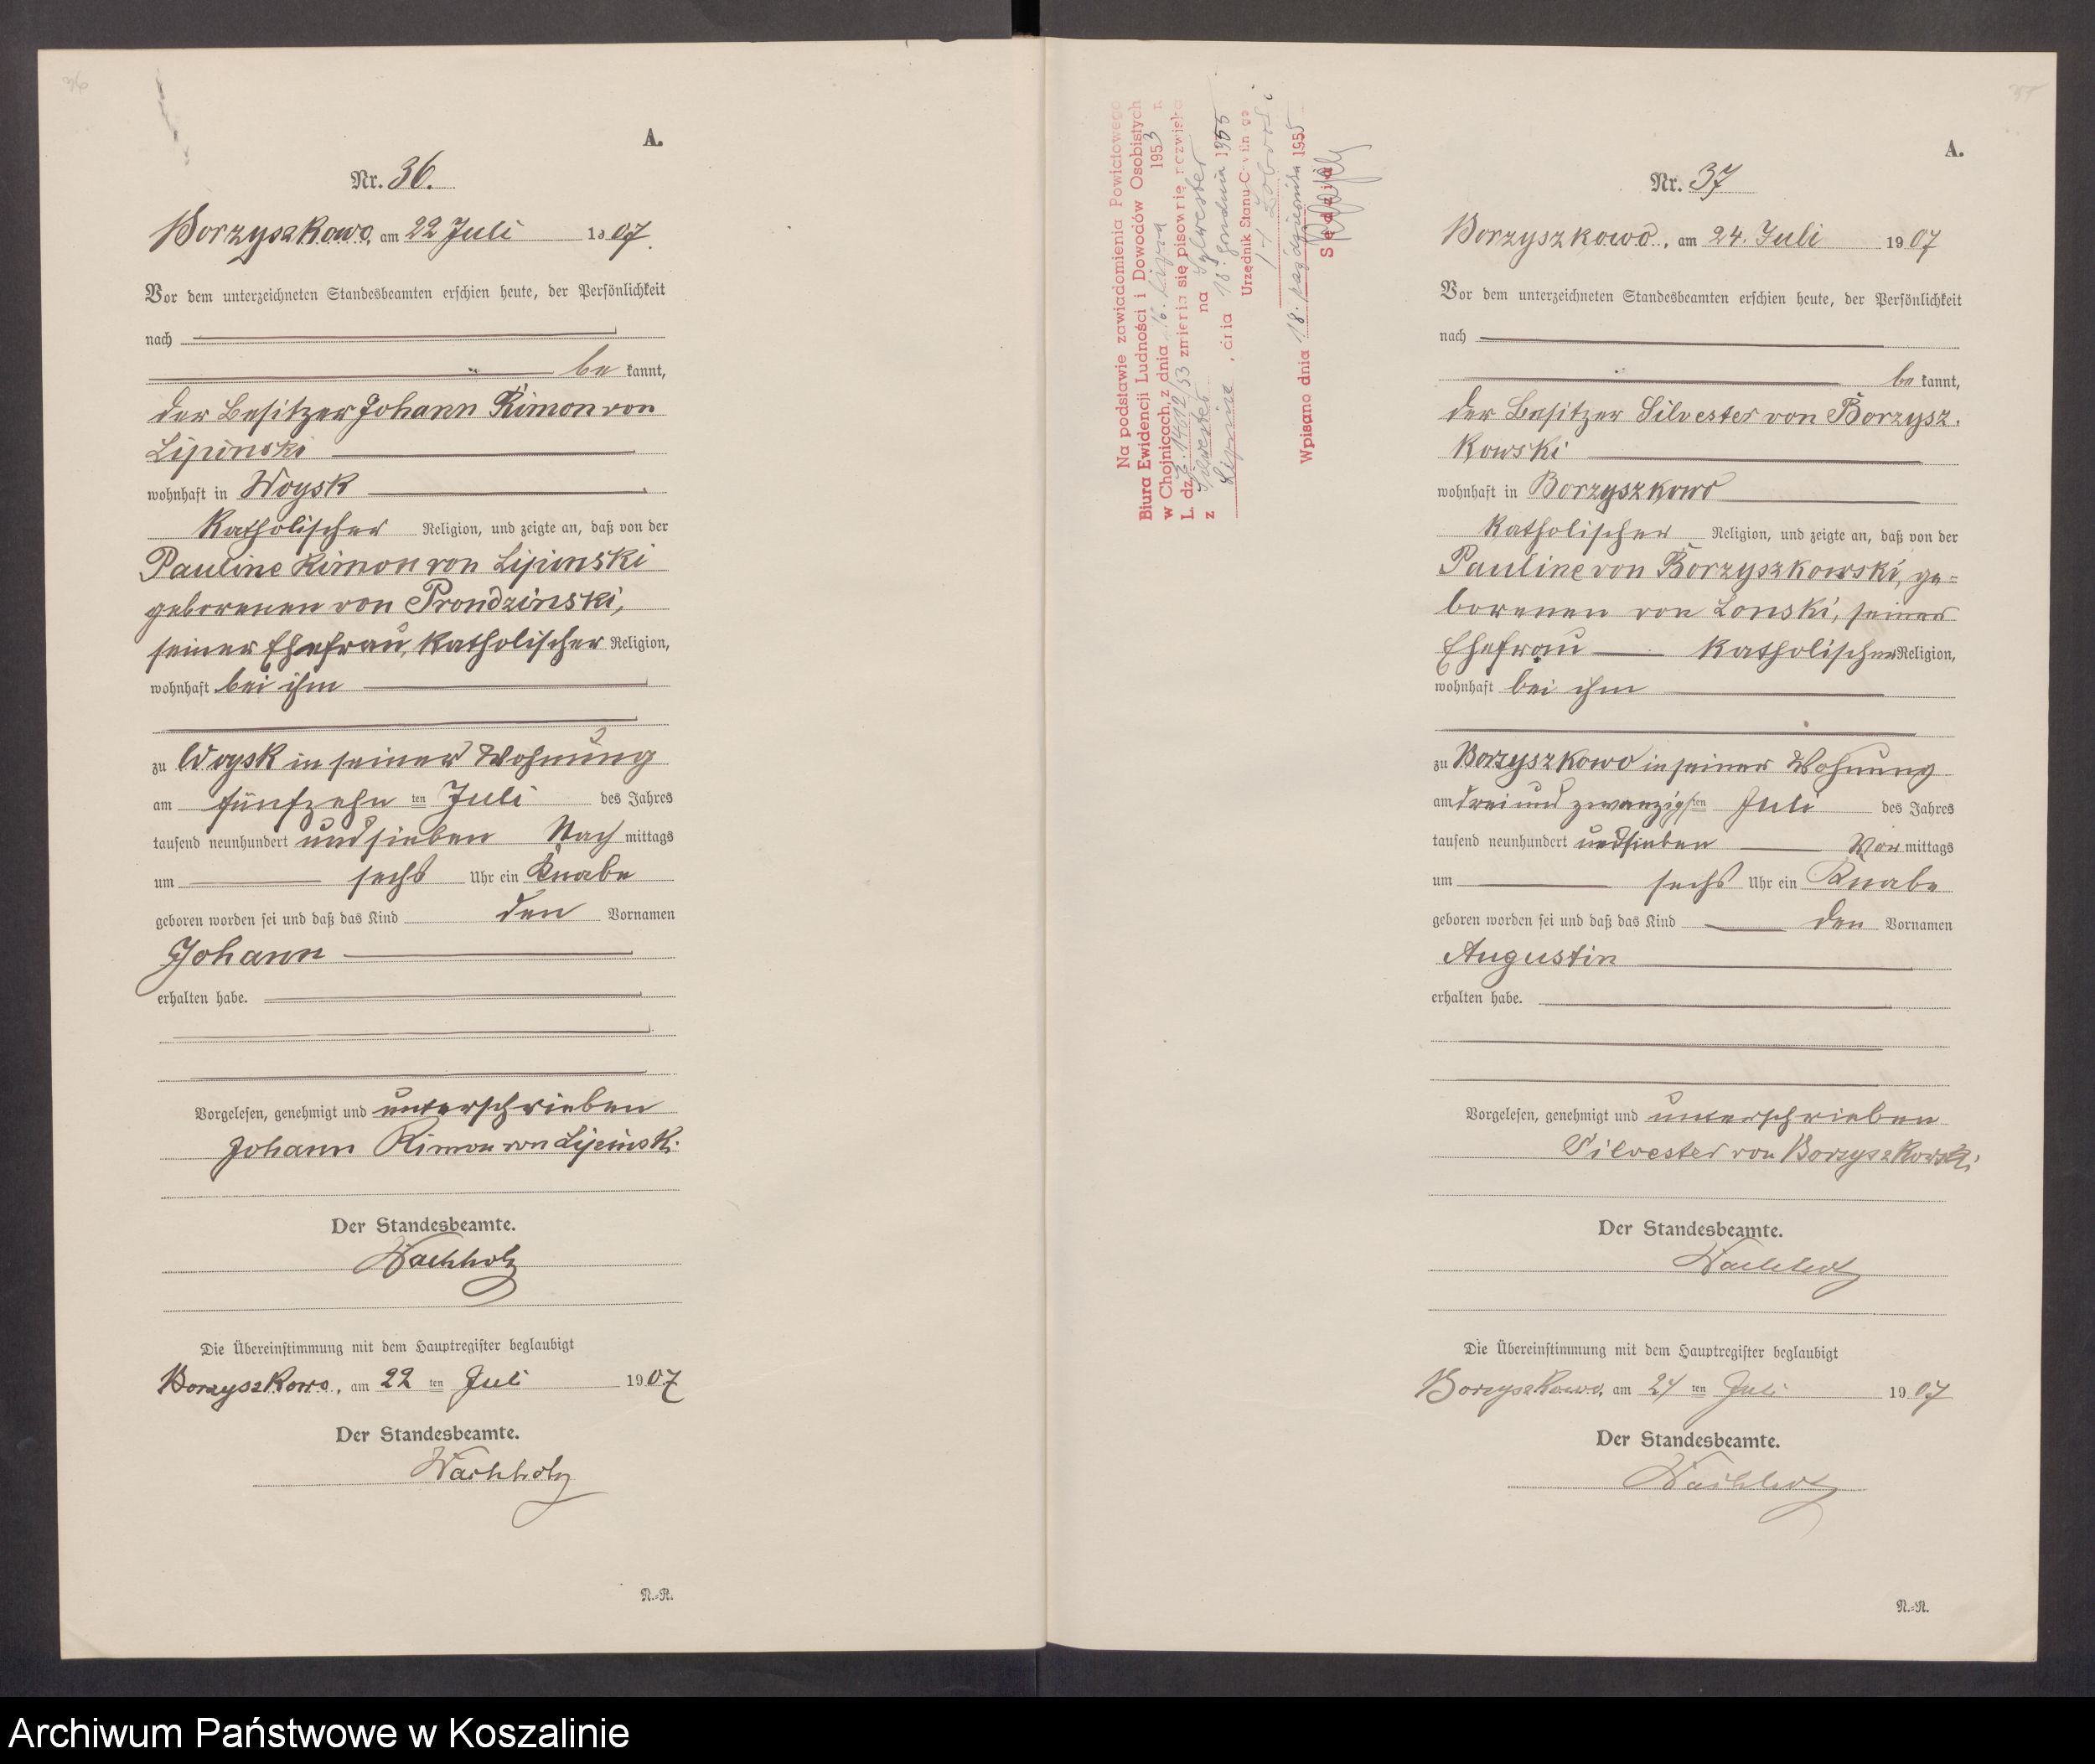 36
A.
Nr. 36.
Borzyszkowo, am 22 Juli 1907.
Vor dem unterzeichneten Standesbeamten erschien heute, der Persönlichkeit
nach
be kannt,
der Besitzer Johann Rimon von
Lipinski
wohnhaft in Woysk
katholischer Religion, und zeigte an, daß von der
Pauline Rimon von Lipinski
geborenen von Prondzinski,
seiner Ehefrau, katholischer Religion,
wohnhaft bei ihm
zu Woysk in seiner Wohnung
am fünfzehn ten Juli des Jahres
tausend neunhundert und sieben Nach mittags
um sechs Uhr ein Knabe
geboren worden sei und daß das Kind den Vornamen
Johann
erhalten habe.
Vorgelesen, genehmigt und unterschrieben
Johann Rimon von Lipinski
Der Standesbeamte.
Wachholz
Die Übereinstimmung mit dem Hauptregister beglaubigt
Borzyszkowo, am 22 ten Juli 1907
Der Standesbeamte.
Wachholz
N.-R.
Na podstawie zawiadomienia Powiatowego
Biura Ewidencji Ludności i Dowodów Osobistych
w Chojnicach, z dnia 16. lipca 1953 r.
L. dz. 53 zmienia się pisownię nazwiska
z Silvester na Sylwester
, dnia 18. grudnia 1955
Urzędnik Stanu Cywilnego
Wpisano dnia 18. października 1955
Sędzia
A.
Nr. 37
Borzyszkowo, am 24. Juli 1907
Vor dem unterzeichneten Standesbeamten erschien heute, der Persönlichkeit
nach
be kannt,
der Besitzer Silvester von Borzysz-
kowski
wohnhaft in Borzyszkowo
katholischer Religion, und zeigte an, daß von der
Pauline von Borzyszkowski, ge=
borenen von Lonski, seiner
Ehefrau katholischer Religion,
wohnhaft bei ihm
zu Borzyszkowo in seiner Wohnung
am dreiundzwanzigsten Juli des Jahres
tausend neunhundert und sieben Vor mittags
um sechs Uhr ein Knabe
geboren worden sei und daß das Kind den Vornamen
Augustin
erhalten habe.
Vorgelesen, genehmigt und unterschrieben
Silvester von Borzyszkowski
Der Standesbeamte.
Wachholz
Die Übereinstimmung mit dem Hauptregister beglaubigt
Borzyszkowo, am 24 ten Juli 1907
Der Standesbeamte.
Wachholz
N.-R.
Archiwum Państwowe w Koszalinie